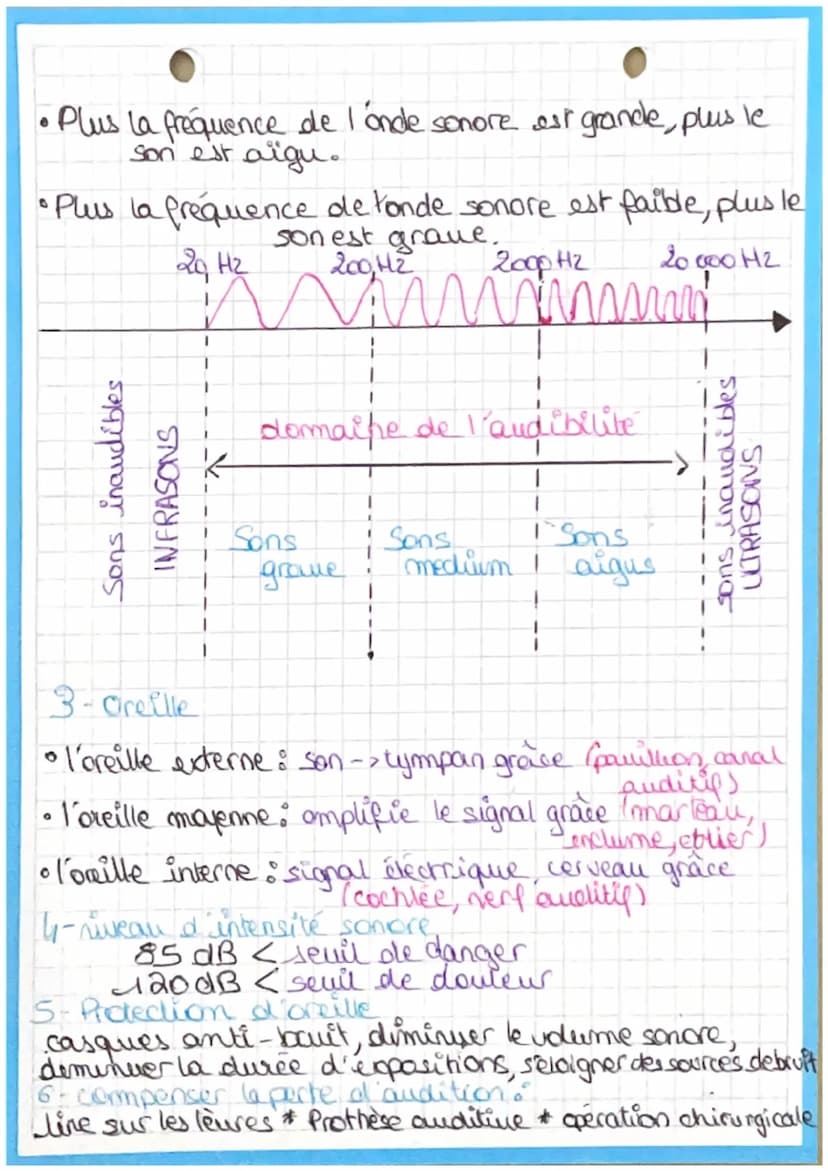 • Plus la fréquence de l'onde sonore est grande, plus le
son est aïgu.
• Plus la fréquence de l'onde sonore est faible, plus le
son est grave.
20 Hz 200 Hz 2000 Hz 20 000 Hz
Sons inaudibles
INFRASONS
domaine de l'audibilité
Sons
grave
Sons
medium
Sons
aigus
sons inaudibles
ULTRASONS
3 - Oreille
• l'oreille externe : son -> tympan grâce (pavillon, canal
auditif)
• l'oreille moyenne : amplifie le signal grâce (marteau,
enclume, étrier)
• l'oreille interne : signal électrique, cerveau grâce
(cochlée, nerf auditif)
4 - niveau d'intensité sonore
85 dB < seuil de danger
120 dB < seuil de douleur
5 - Protection d'oreille
casques anti-bruit, diminuer le volume sonore,
diminuer la durée d'expositions, s'éloigner des sources de bruit
6 - compenser la perte d'audition :
lire sur les lèvres * Prothèse auditive * opération chirurgicale